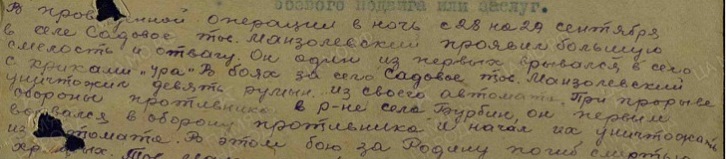 боевого подвига или заслуг.
В операции в ночь с 28 на 29 сентября
в селе Садовое тов. Манзолевский проявил большую
смелость и отвагу. Он один из первых врывался в село
с криками "ура" В боях за село Садовое тов. Манзолевский
уничтожил девять румын из своего автомата. При прорыве
обороны противника в р-не села Бурбин, он первым
ворвался в оборону противника и начал их уничтожать
из автомата. В этом бою за Родину погиб смертью